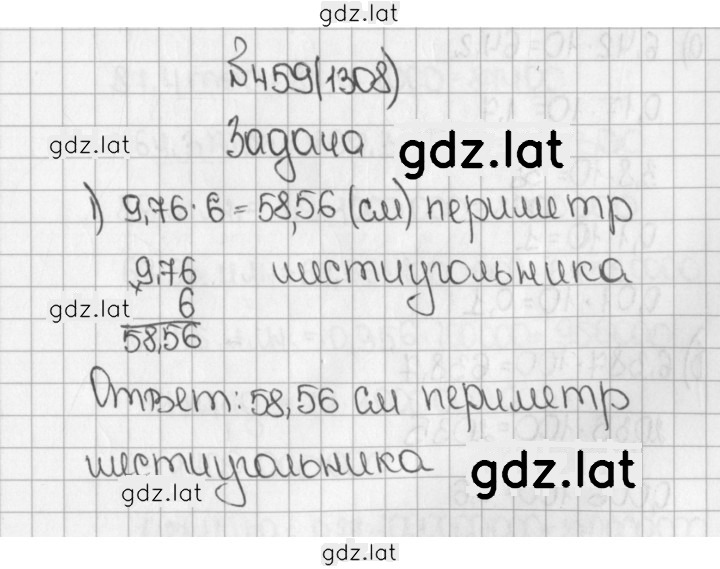 gdz.lat
№459(1308)
Задача
gdz.lat
gdz.lat
1) 9,76 · 6 = 58,56 (см) периметр
шестиугольника
9,76
× 6
58,56
gdz.lat
Ответ: 58,56 см периметр
шестиугольника
gdz.lat
gdz.lat
gdz.lat